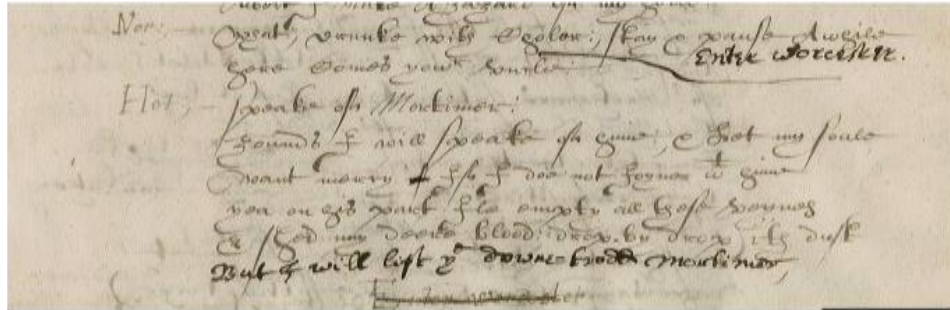 Nor: What, drunke with Coller, stay & pause a weile
Enter Worcester.
here Comes your Vncle
Hot: speake of Mortimer:
Zounds I will speake of him, & let my soule
want mercy if I doe not Joyne wt him
yea on his part Ile empty all these Veynes
& shed my deere blood drop by drop ith dust
But I will lift ye downetrodd Mortimer,
Enter Worcester